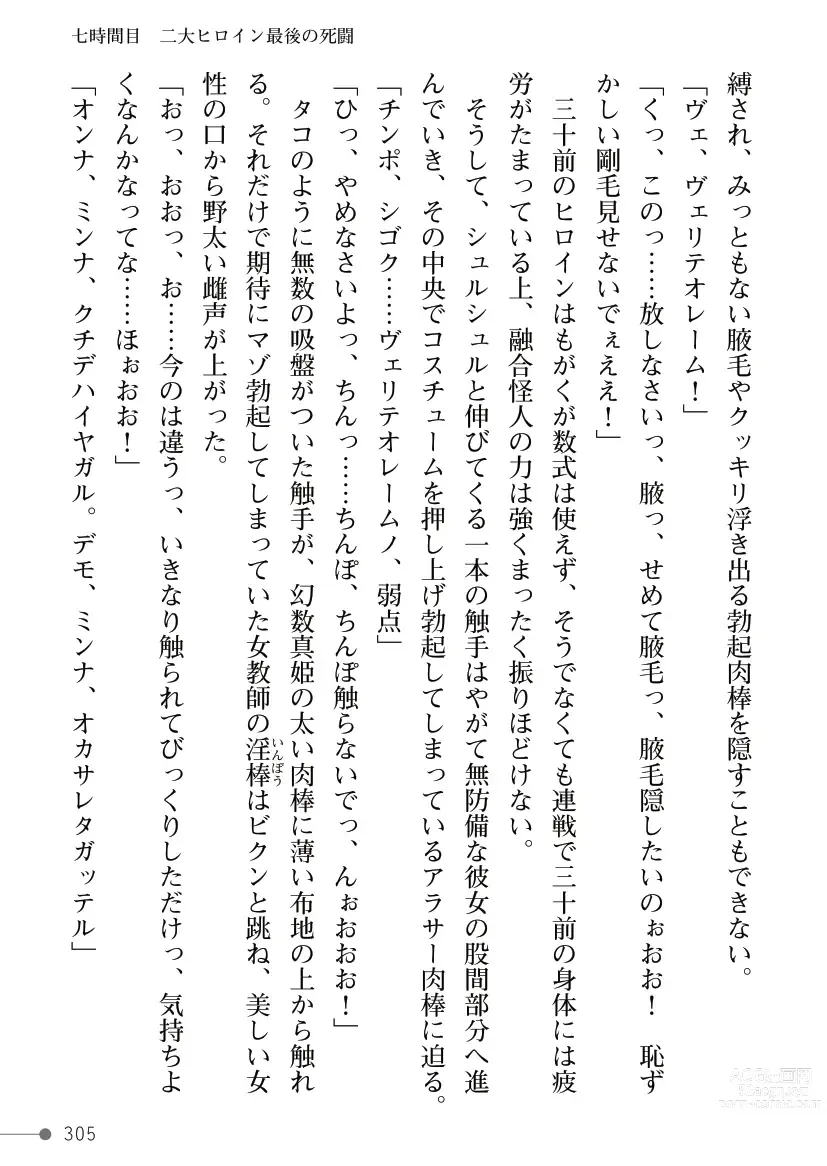 七時間目　二大ヒロイン最後の死闘
縛され、みっともない腋毛やクッキリ浮き出る勃起肉棒を隠すこともできない。
「ヴェ、ヴェリテオレーム！」
「くっ、このっ……放しなさいっ、腋っ、せめて腋毛っ、腋毛隠したいのぉおお！　恥ず
かしい剛毛見せないでぇええ！」
三十前のヒロインはもがくが数式は使えず、そうでなくても連戦で三十前の身体には疲
労がたまっている上、融合怪人の力は強くまったく振りほどけない。
そうして、シュルシュルと伸びてくる一本の触手はやがて無防備な彼女の股間部分へ進
んでいき、その中央でコスチュームを押し上げ勃起してしまっているアラサー肉棒に迫る。
「チンポ、シゴク……ヴェリテオレームノ、弱点」
「ひっ、やめなさいよっ、ちんっ……ちんぽ、ちんぽ触らないでっ、んぉおおお！」
タコのように無数の吸盤がついた触手が、幻数真姫の太い肉棒に薄い布地の上から触れ
る。それだけで期待にマゾ勃起してしまっていた女教師の淫棒はビクンと跳ね、美しい女
いんぼう
性の口から野太い雌声が上がった。
「おっ、おおっ、お……今のは違うっ、いきなり触られてびっくりしただけっ、気持ちよ
くなんかなってな……ほぉおお！」
「オンナ、ミンナ、クチデハイヤガル。デモ、ミンナ、オカサレタガッテル」
305